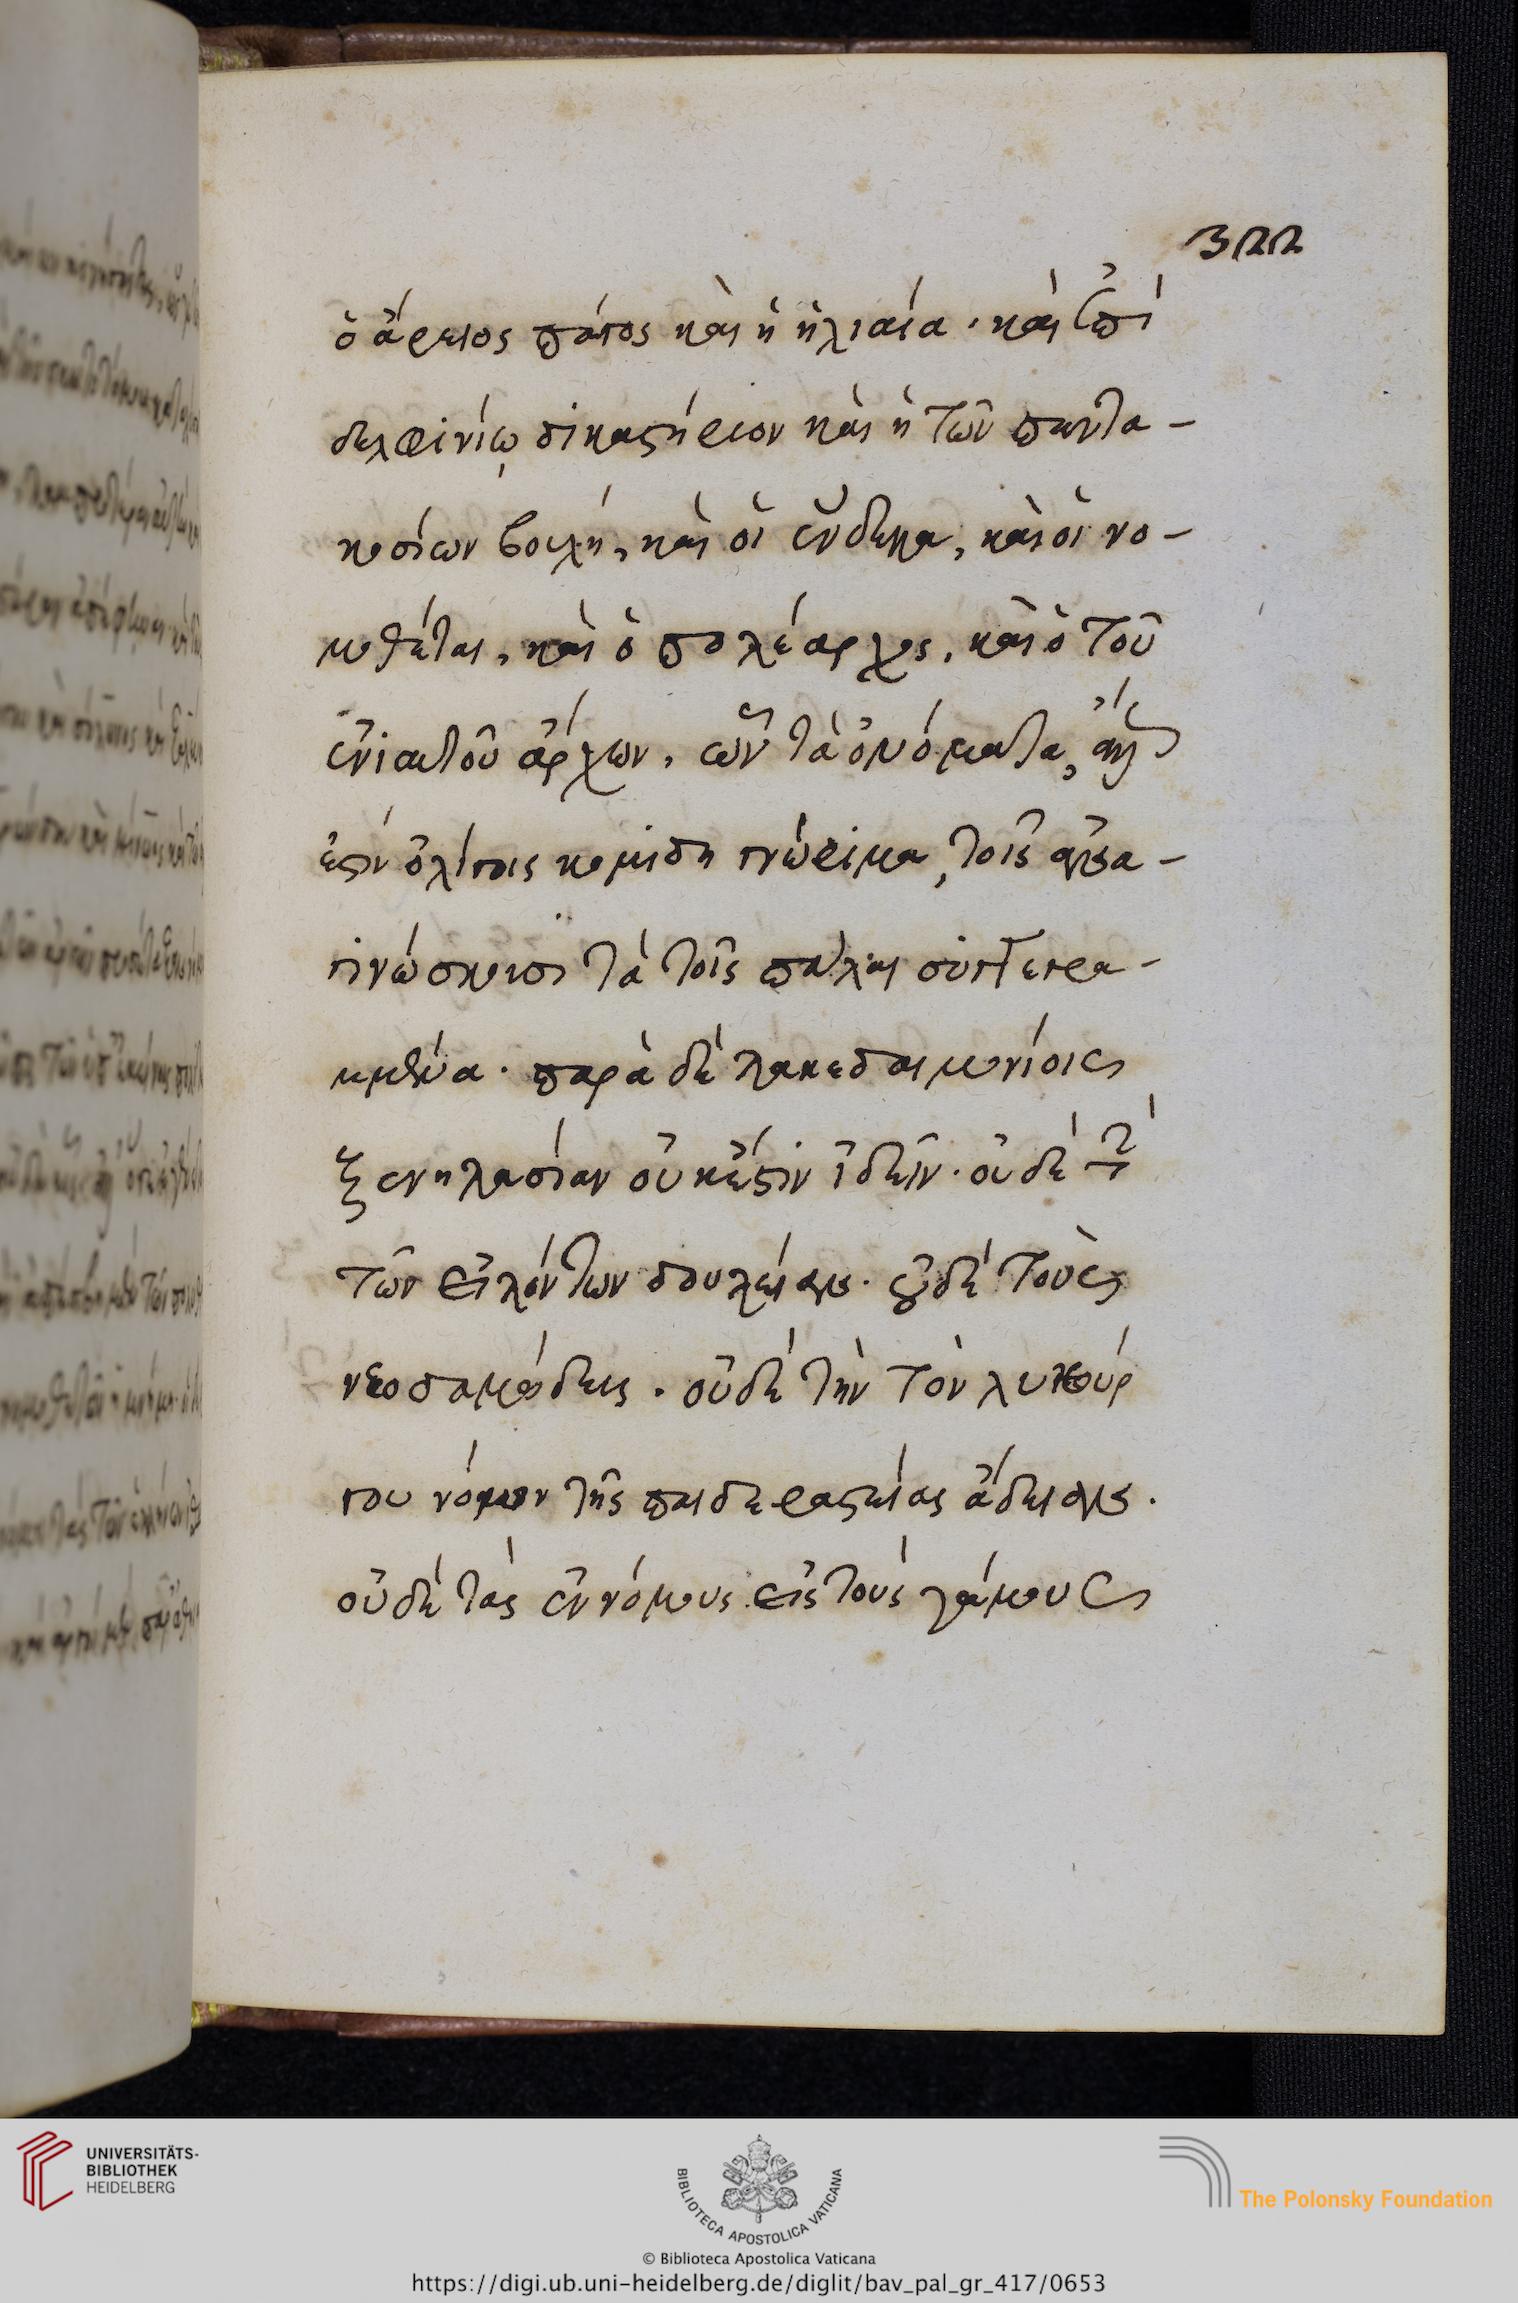 322
ὁ ἄρειος πάγος καὶ ἡ ἡλιαία· καὶ ἐπὶ
δελφινίῳ δικαστήριον καὶ ἡ τῶν πεντα-
κοσίων βουλὴ, καὶ οἱ ἕνδεκα, καὶ οἱ νο-
μοθέται, καὶ ὁ πολέαρχος, καὶ ὁ τοῦ
ἐνιαυτοῦ ἄρχων, ὧν τὰ ὀνόματα,
ἐστὶν ὀλίγοις κομιδη γνώριμα, τοῖς ἀνα-
γινώσκουσι τὰ τοῖς πάλαι συγγεγρα-
μμένα· παρὰ δὲ λακεδαιμονίοις
ξενηλασίαν οὐκ ἔστιν ἰδεῖν· οὐδὲ τὴν
τῶν εἱλόντων δουλείαν· οὐδὲ τοὺς
νεοδαμώδεις· οὐδὲ τὴν τὸν λυκούρ
γου νόμον τῆς παιδεραστείας ἄδειαν·
οὐδὲ τὰς ἐννόμους εἰς τοὺς γάμους
UNIVERSITÄTS-
BIBLIOTHEK
HEIDELBERG
BIBLIOTECA APOSTOLICA VATICANA
The Polonsky Foundation
© Biblioteca Apostolica Vaticana
https://digi.ub.uni-heidelberg.de/diglit/bav_pal_gr_417/0653